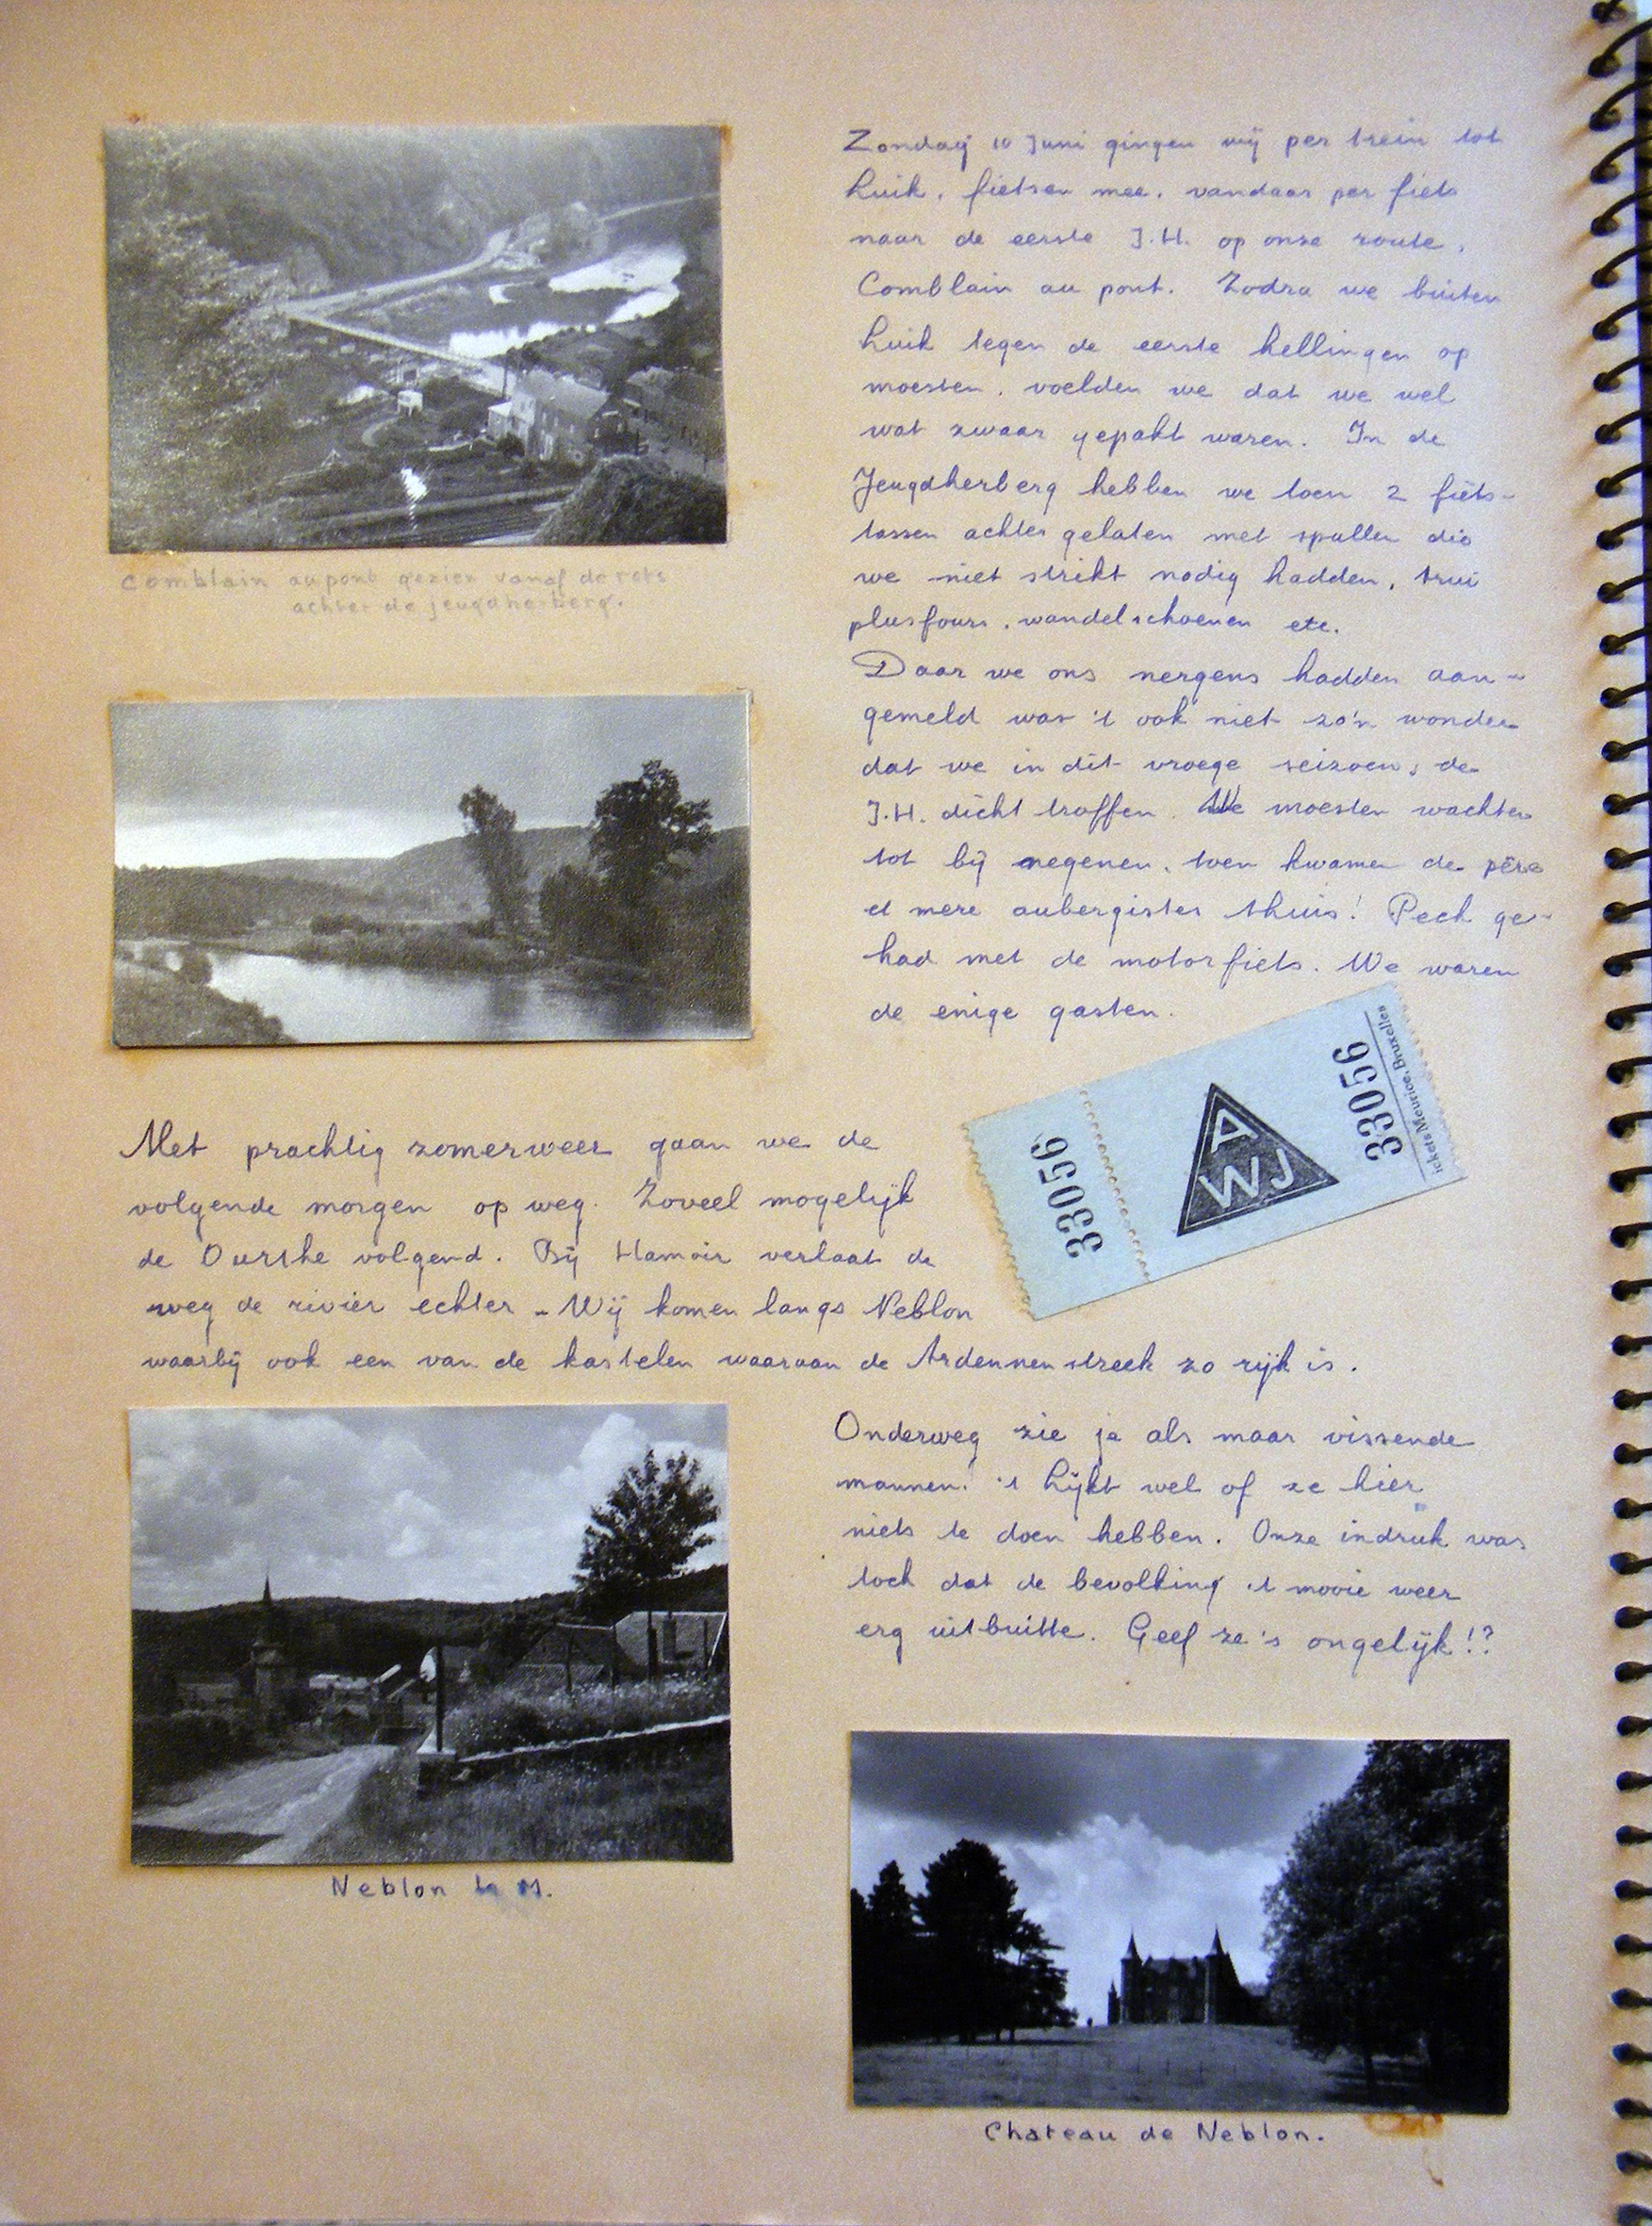 Zondag 10 Juni gingen wij per trein tot
Luik, fietsen mee, vandaar per fiets
naar de eerste J.H. op onze route,
Comblain au pont. Zodra we buiten
Luik tegen de eerste hellingen op
moesten, voelden we dat we wel
wat zwaar gepakt waren. In de
Jeugdherberg hebben we toen 2 fiets-
tassen achter gelaten met spullen die
we niet strikt nodig hadden, trui
plusfours, wandelschoenen etc.
Daar we ons nergens hadden aan-
gemeld was 't ook niet zo'n wonder
dat we in dit vroege seizoen, de
J.H. dicht troffen. We moesten wachten
tot bij negenen, toen kwamen de père
et mere aubergistes thuis! Pech ge-
had met de motorfiets. We waren
de enige gasten.
Comblain au pont gezien vanaf de rots
achter de jeugdherberg.
33056
AWJ
33056
Tickets Meurice, Bruxelles
Met prachtig zomerweer gaan we de
volgende morgen op weg. Zoveel mogelijk
de Ourthe volgend. Bij Hamoir verlaat de
weg de rivier echter - Wij komen langs Neblon
waarbij ook een van de kastelen waaraan de Ardennenstreek zo rijk is.
Onderweg zie je als maar vissende
mannen! 't Lijkt wel of ze hier
niets te doen hebben. Onze indruk was
toch dat de bevolking 't mooie weer
erg uitbuitte. Geef ze 's ongelijk!?
Neblon le M.
Chateau de Neblon.